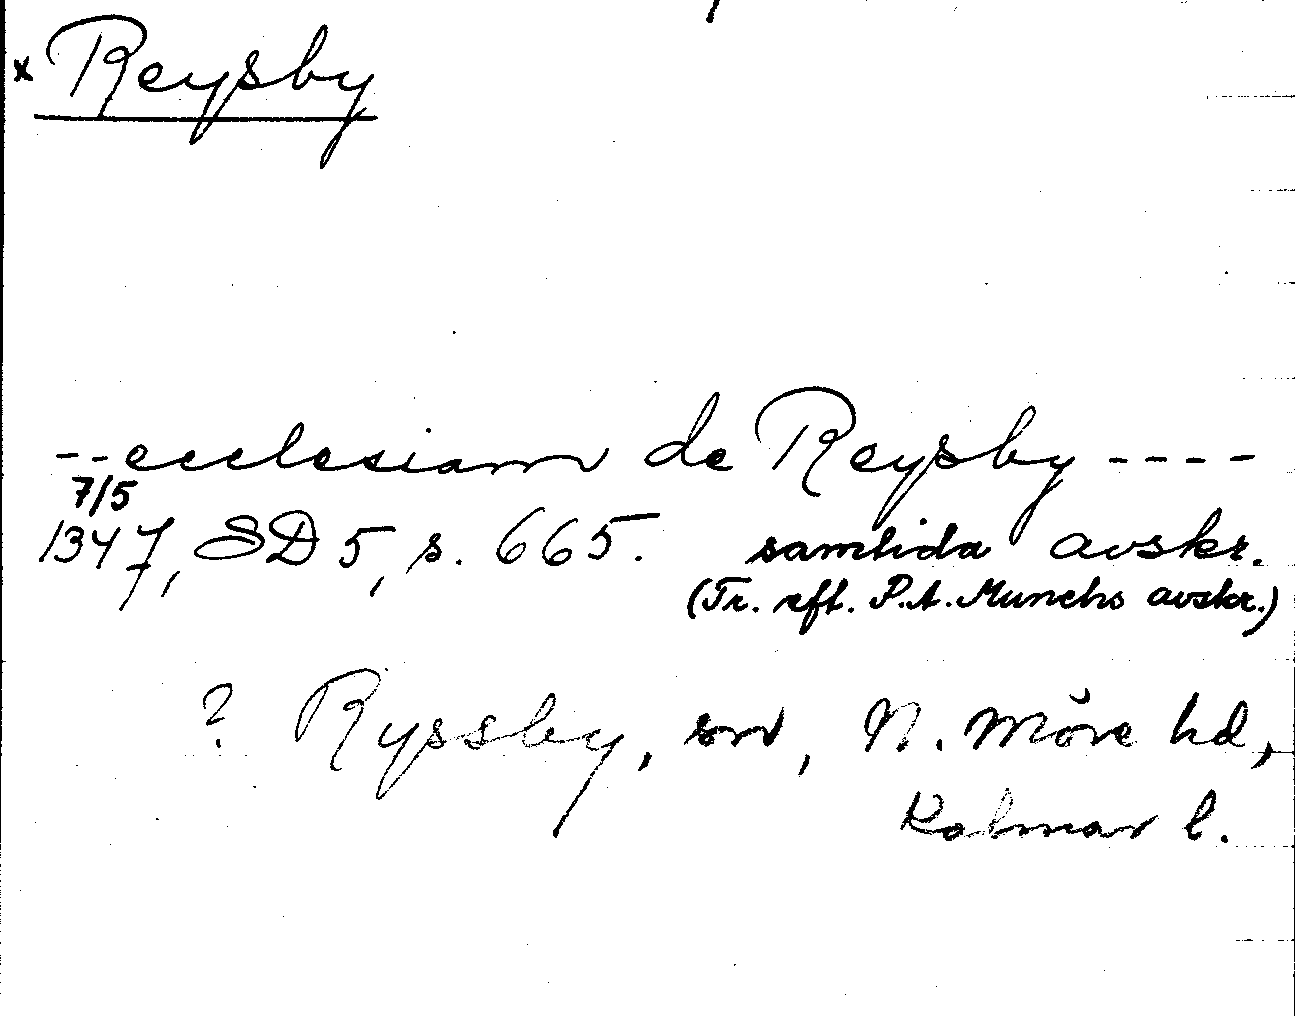 x Reysby
--ecclesiam de Reysby ----
7/5
1347, SD 5, s. 665. samtida avskr.
(Tr. eft. P.A. Munchs avskr.)
? Ryssby, sn, N. Möre hd,
Kalmar l.